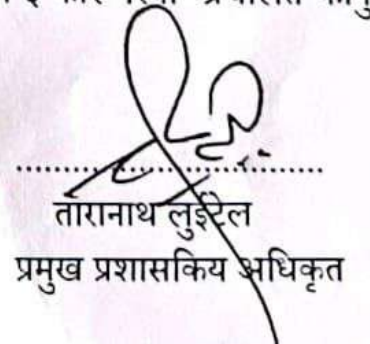 ..............................
तारानाथ लुईटेल
प्रमुख प्रशासकिय अधिकृत